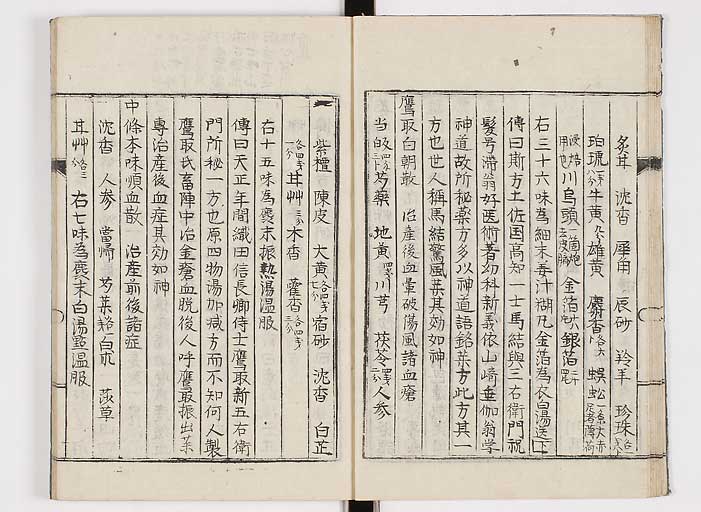 炙甘 沈香 犀角 辰砂 羚羊 珍珠
琥珀 牛黄 雄黄 麝香 蜈蚣
川烏頭 金箔 銀箔
右三十六味為細末每汁糊丸金箔為衣白湯送下
傳曰斯方土佐国高知一士馬結與三右衛門祝
髪号滞翁好医術著幼科新義依山崎垂伽翁学
神道故所秘薬方多以神道語銘薬方此方其一
方也世人稱馬結驚風薬其効如神
鷹取白朝散 治産後血暈破傷風諸血瘡
当皈 芍薬 地黄 川芎 茯苓 人参
紫檀 陳皮 大黄 宿砂 沈香 白芷
甘艸 木香 藿香
右十五味為麁末振熱湯温服
傳曰天正年間織田信長卿侍士鷹取新五右衛
門所秘一方也原四物湯加减方而不知何人製
鷹取氏畜陣中治金瘡血脱後人呼鷹取振出薬
專治産後血症其効如神
中條本味順血散 治産前後諸症
沈香 人参 當帰 芍薬 白朮 莪草
甘艸 右七味為麁末白湯點温服